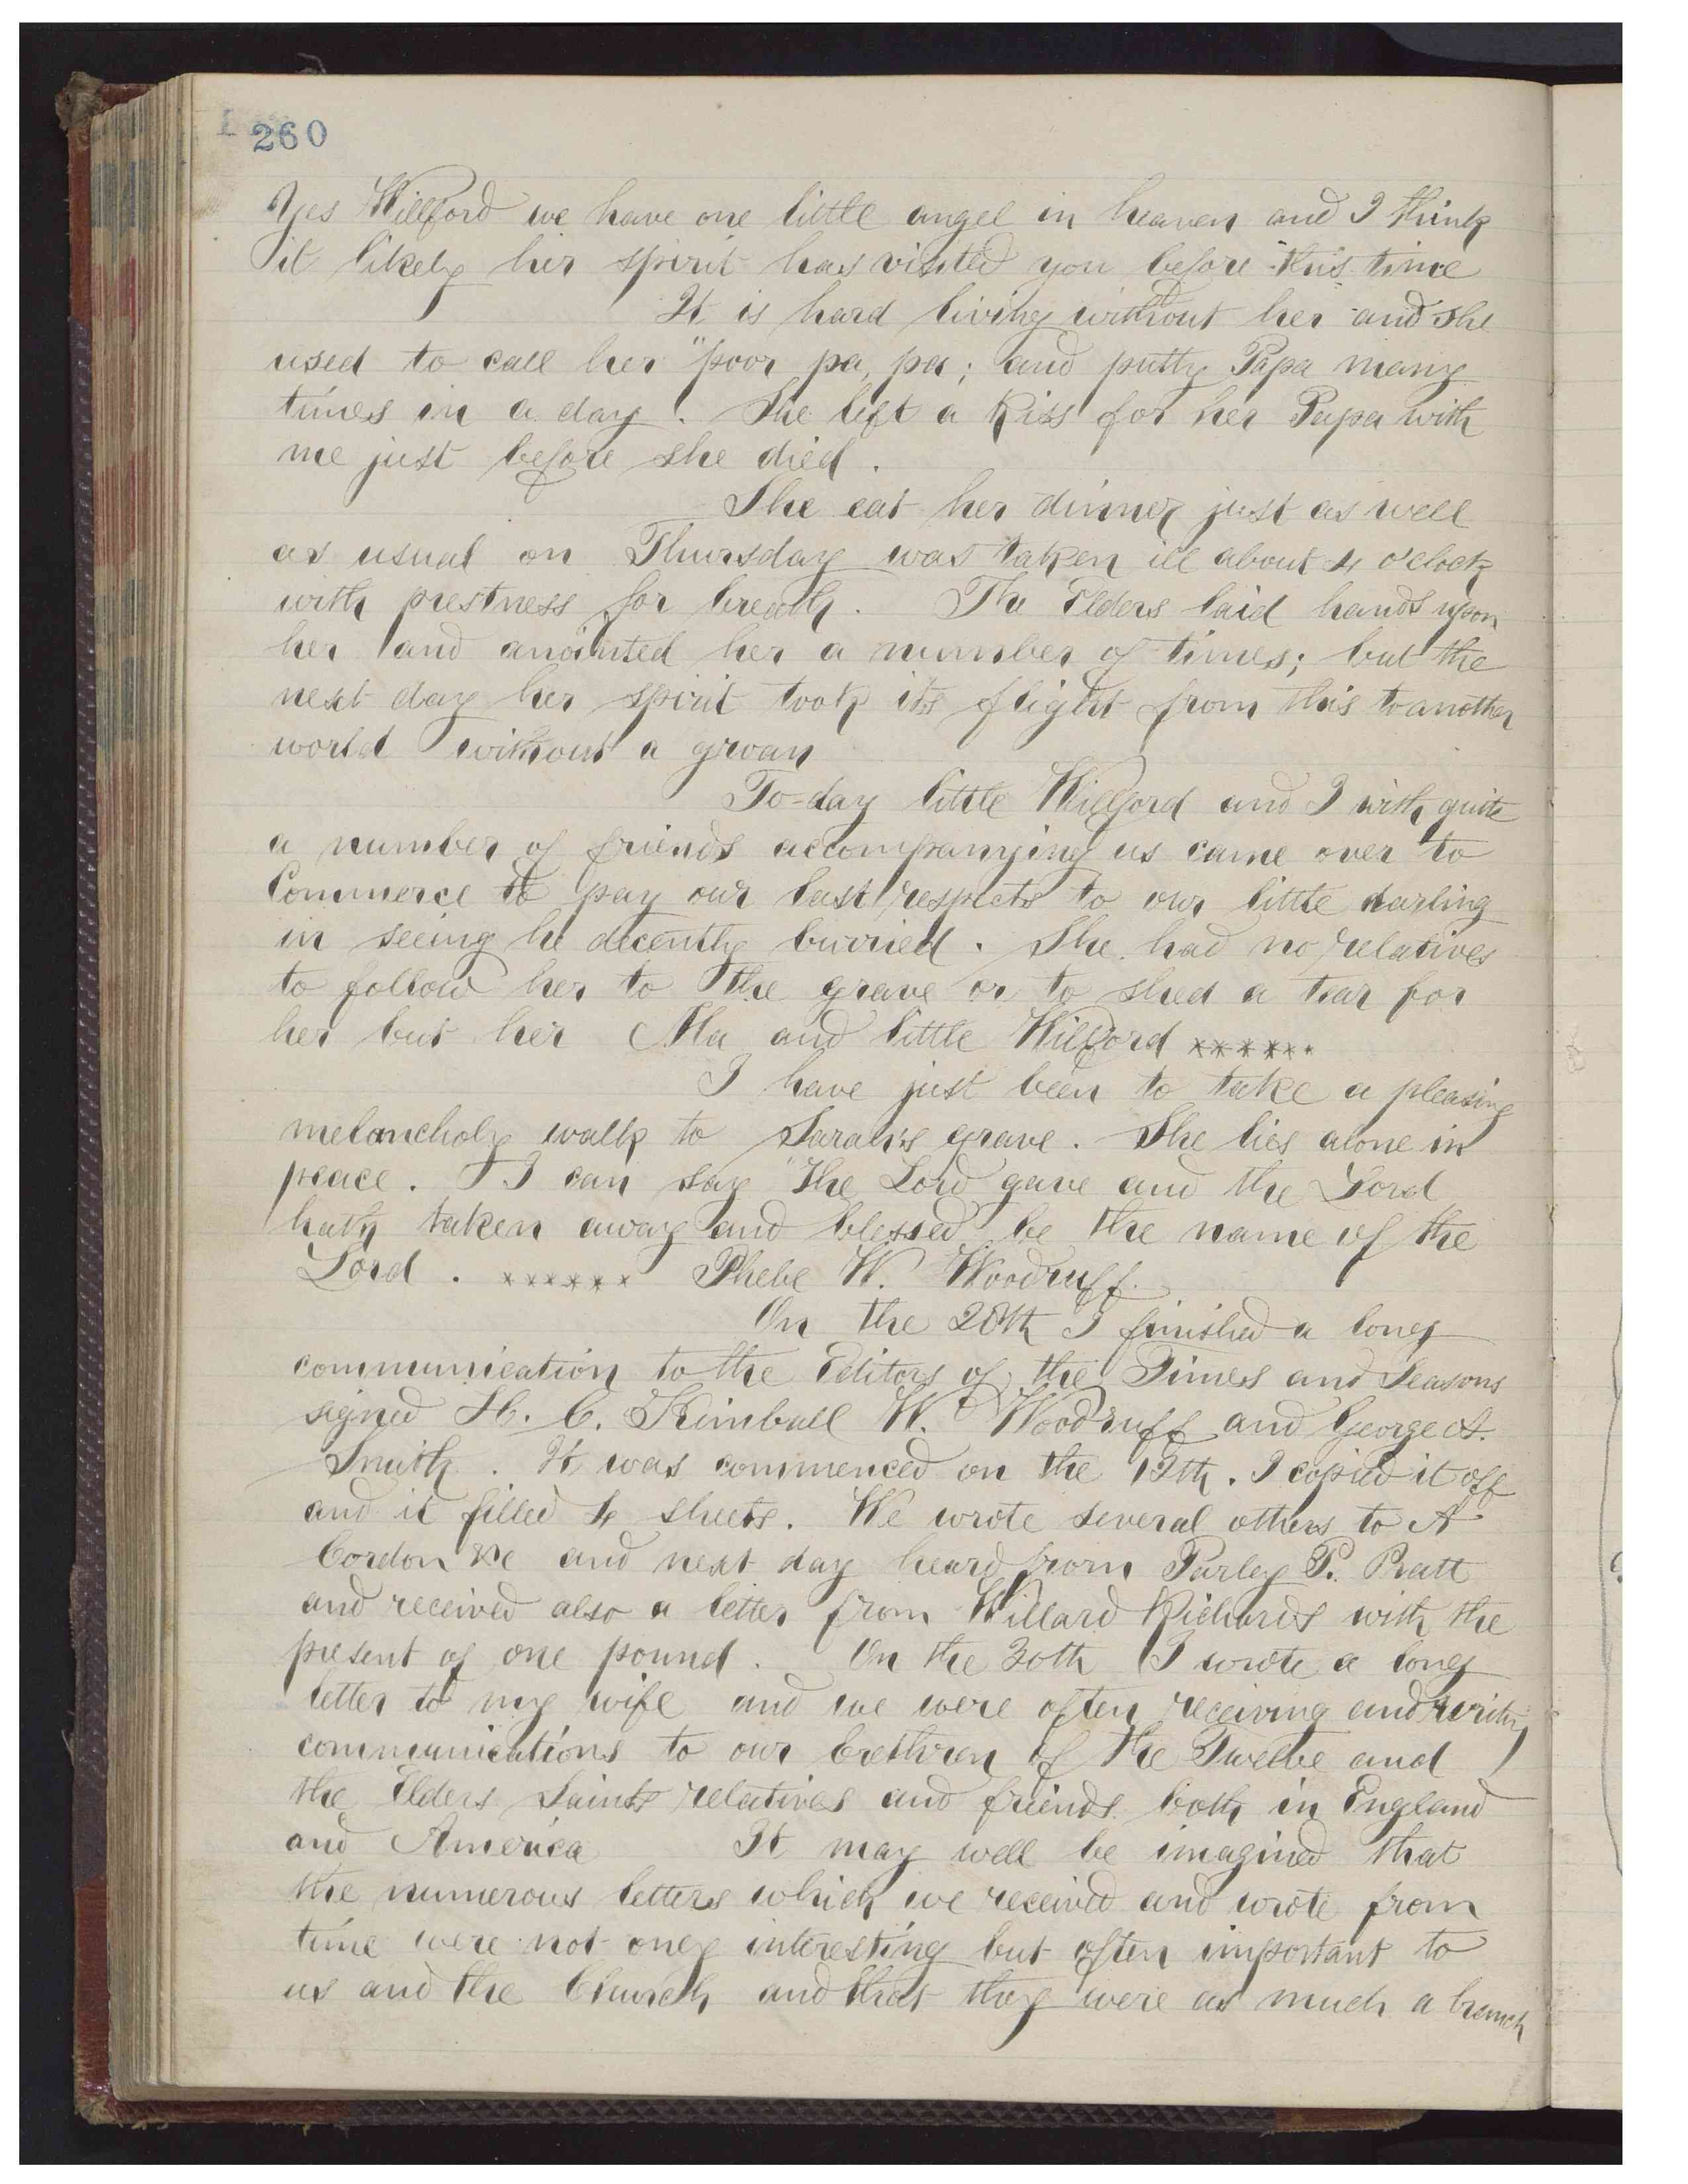 260
Yes Willford we have one little angel in heaven and I think
it likely her spirit has visited you before this time
It is hard living without her and she
used to call her "poor pa, pa; and putty Papa many
times in a day. She left a kiss for her Papa with
me just before she died.
She eat her dinner just as well
as usual on Thursday was taken ill about 4 o'clock
with prestness for breath. The Elders laid hands upon
her and anointed her a number of times; but the
next day her spirit took its flight from this to another
world without a groan
To-day little Willford and I with quite
a number of friends accompanying us came over to
Commerce to pay our last respects to our little darling
in seeing he decently burried. She had no relatives
to follow her to the grave or to shed a tear for
her but her Ma and little Willford ××××××
I have just been to take a pleasing
melancholy walk to Sarah's grave. She lies alone in
peace. I can say "The Lord gave and the Lord
hath taken away and blessed be the name of the
Lord. ×××××× Phebe W. Woodruff.
On the 28th I finished a long
communication to the Editors of the Times and Seasons
signed H. C. Kimball W. Woodruff and George A.
Smith. It was commenced on the 12th. I copied it off
and it filled 4 sheets. We wrote several others to A
Cordon &c and next day heard from Parley P. Pratt
and received also a letter from Willard Richards with the
present of one pound. On the 30th I wrote a long
letter to my wife and we were often receiving and writing
communications to our brethren of the Twelve and
the Elders Saints relatives and friends both in England
and America It may well be imagined that
the numerous letters which we received and wrote from
time were not only interesting but often important to
us and the Church and that they were as much a branch